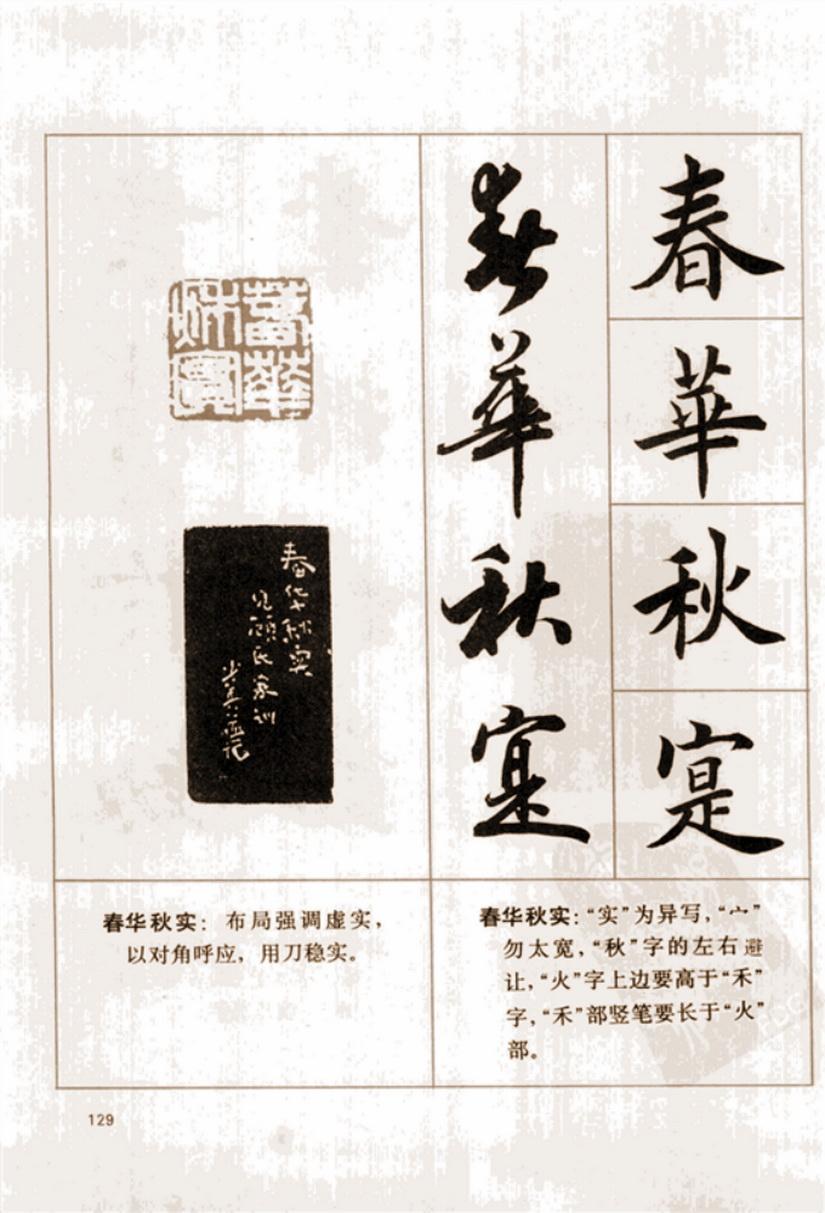 春
華
秋
寔
春華秋寔
春華
秋實
春华秋实
见顔氏家训
记
春华秋实：“实”为异写，“宀”
勿太宽，“秋”字的左右避
让，“火”字上边要高于“禾”
字，“禾”部竖笔要长于“火”
部。
春华秋实：布局强调虚实，
以对角呼应，用刀稳实。
129